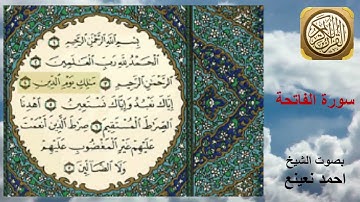 بِسْمِ اللَّهِ الرَّحْمَٰنِ الرَّحِيمِ ١
الْحَمْدُ لِلَّهِ رَبِّ الْعَالَمِينَ ٢
الرَّحْمَٰنِ الرَّحِيمِ ٣ مَالِكِ يَوْمِ الدِّينِ ٤
إِيَّاكَ نَعْبُدُ وَإِيَّاكَ نَسْتَعِينُ ٥ اهْدِنَا
الصِّرَاطَ الْمُسْتَقِيمَ ٦ صِرَاطَ الَّذِينَ أَنْعَمْتَ
عَلَيْهِمْ غَيْرِ الْمَغْضُوبِ عَلَيْهِمْ
وَلَا الضَّالِّينَ ٧
سورة الفاتحة
بصوت الشيخ
احمد نعينع